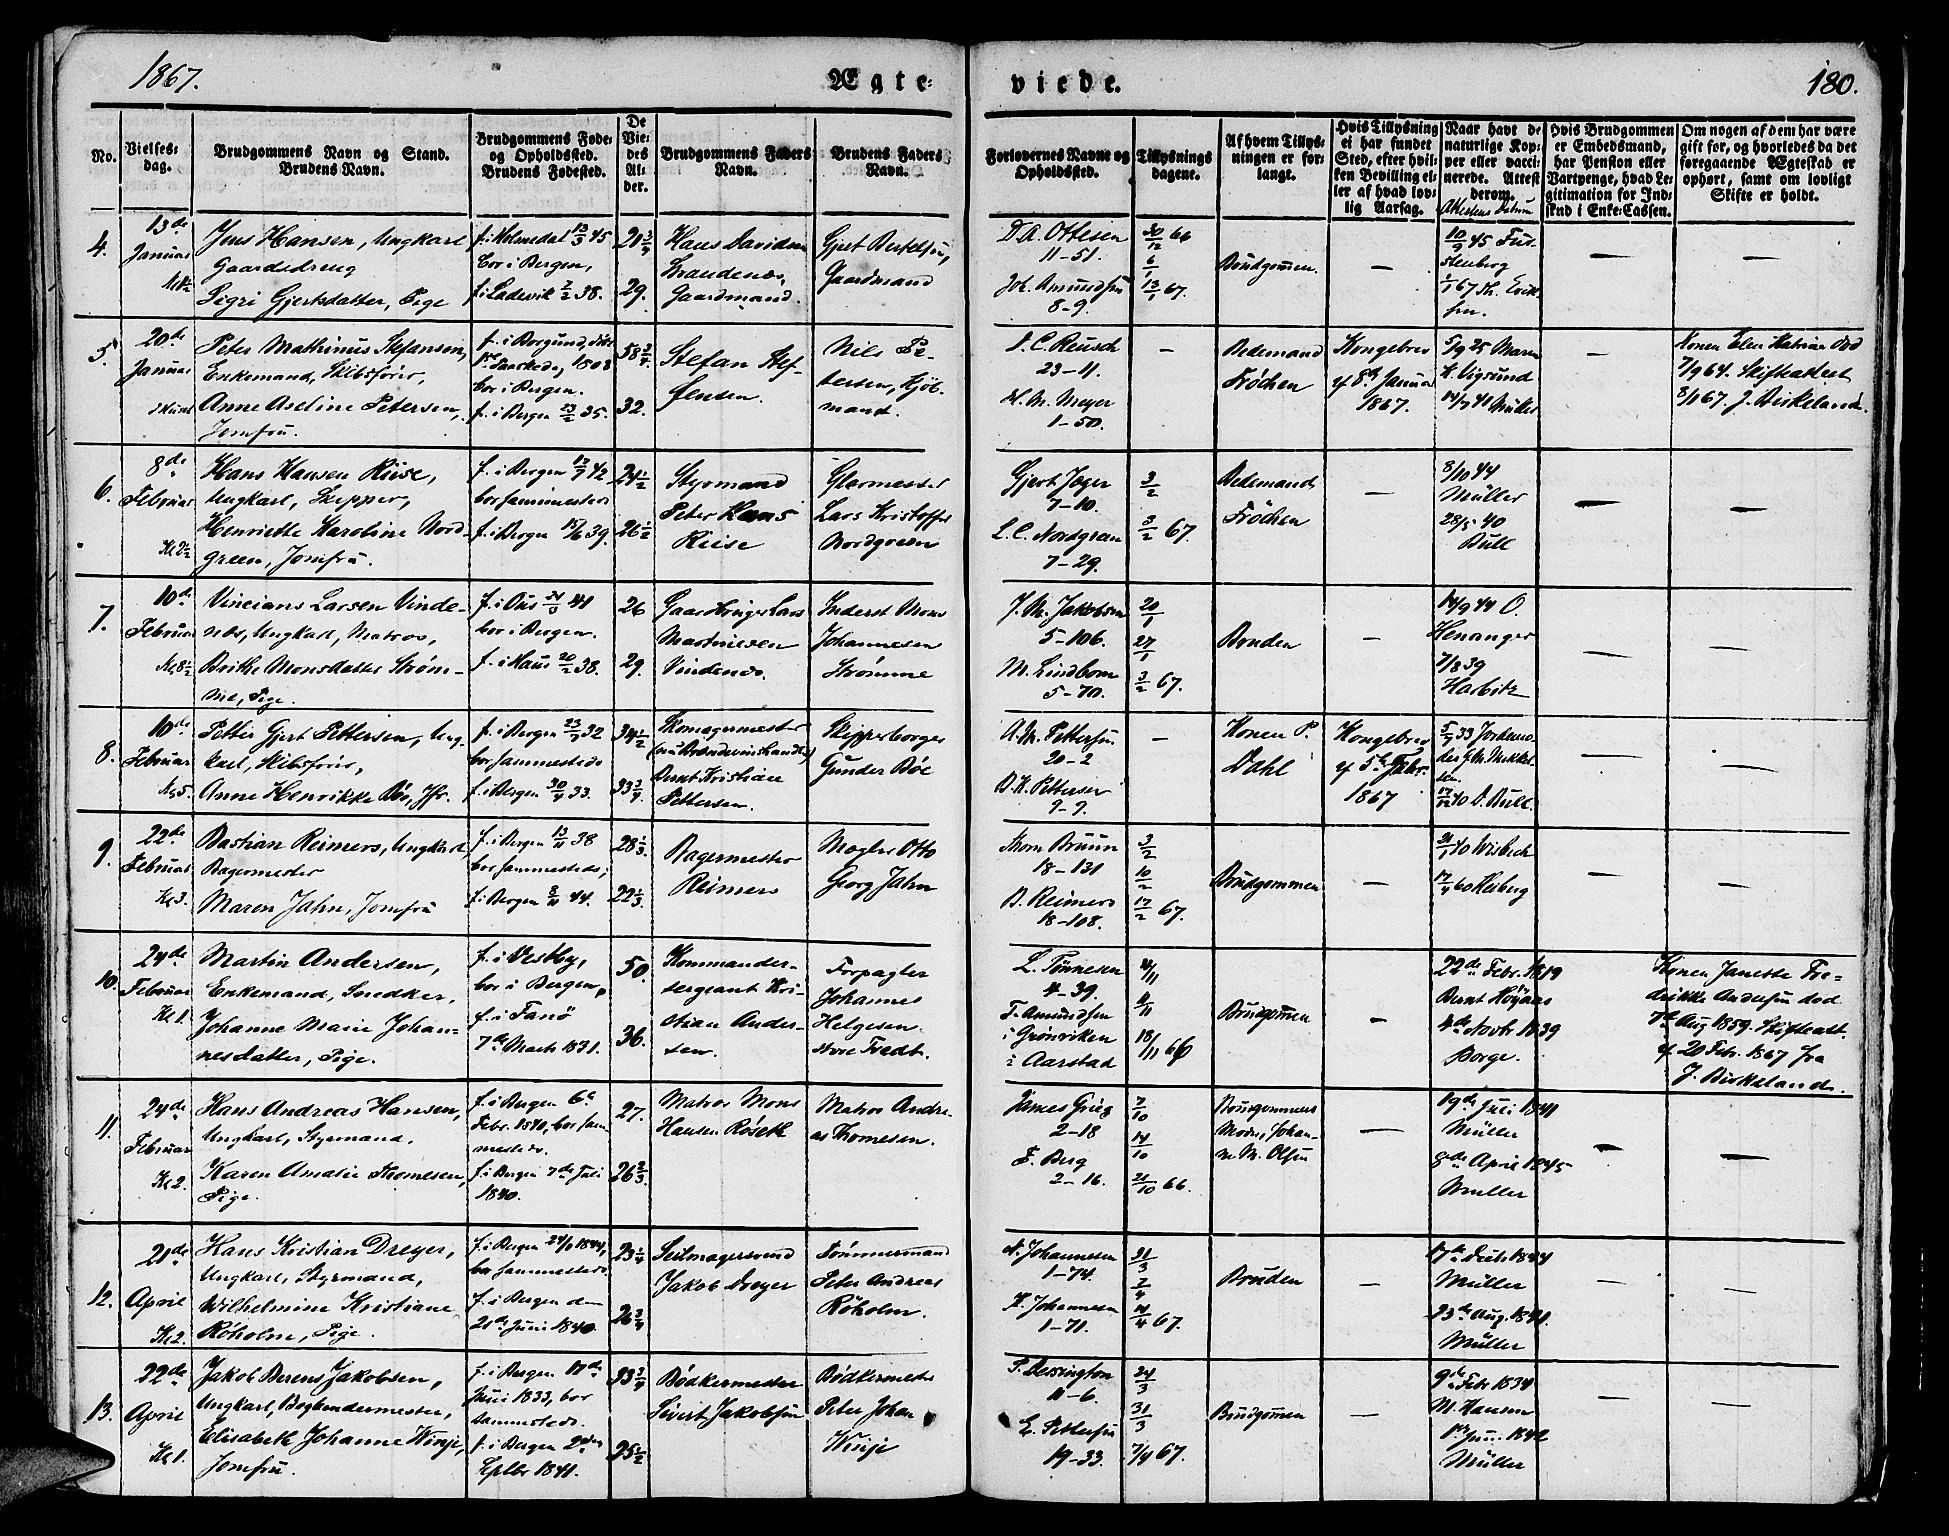 1867.
Ægte-
viede.
180.
No.
Vielses-
dag.
Brudgommens Navn og Stand.
Brudens Navn.
Brudgommens Føde-
og Opholdssted.
Brudens Fødested.
De
Vie-
des
Al-
der.
Brudgommens Faders
Navn.
Brudens Faders
Navn.
Forlovernes Navne og
Opholdssted.
Tillysnings
dagene.
Af hvem Tillys-
ningen er for-
langt.
Hvis Tillysning
ei har fundet
Sted, efter hvil-
ken Bevilling el-
ler af hvad lov-
lig Aarsag.
Naar havt de
naturlige Kop-
per eller vacci-
nerede. Attest
derom.
Attestens Datum
Hvis Brudgommen
er Embedsmand,
har Pension eller
Vartpenge, hvad Le-
gitimation for Ind-
skud i Enke-Cassen.
Om nogen af dem har være
gift før, og hvorledes da det
foregaaende Ægteskab er
ophørt, samt om lovligt
Skifte er holdt.
4.
13de
Januar
Jens Hansen, Ungkarl
Gaardsdreng
Sigri Gjertsdatter, Pige
f. i Holmedal 13/3 45
bor i Bergen,
f. i Ladevik 2/2 38.
21 3/4
29.
Hans Davidsen
Strandenæs,
Gaardmand.
Gjert Bertelsen,
Gaardmand
D. A. Ottesen
11-51.
Joh. Amundsen
8-9.
30/12 66
6/1
13/1 67.
Brudgommen.
—
10/9 45 Fus
Stenberg
1/1 67 Th. Erik-
sen.
—
—
5.
20de
Januar
Peter Mathinus Stefansen,
Enkemand, Skibsfører,
Anne Aseline Petersen,
Jomfru.
f. i Borgund, døbt
1808
bor i Bergen.
f. i Bergen 23/2 35.
58 3/4.
32.
Stefan Stef-
fensen.
Nils Pe-
tersen, Kjøb-
mand.
J. C. Reusch
23-11.
H. M. Meyer
1-50.
—
Bedemand
Frøchen
Kongebrev
af 8de Januar
1867.
5/9 25 Maren
K. Vigsund
14/7 41 Müller
—
Konen Elen Katrine død
7/9 64. Skifteattest
8/1 67. J. Birkeland.
6.
8de
Februar
Kl 2½
Hans Hansen Riise,
Ungkarl, Skipper,
Henriette Karoline Nord-
green, Jomfru.
f. i Bergen 12/9 42
bor sammesteds
f. i Bergen 15/6 39.
24½
26½
Styrmand
Peter Hans
Riise
Glarmester
Lars Kristoffer
Nordgreen
Gjert Jæger
7-10.
L. C. Nordgreen
7-29.
3/2
3/2 67.
Bedemand
Frøchen
—
8/10 44
Müller
28/5 40
Bull
—
—
7.
10de
Februar
Kl 8½
Vincians Larsen Vinde-
næs, Ungkarl, Matros,
Brithe Monsdatter Strøm-
me, Pige.
f. i Ous 24/5 41
bor i Bergen.
f. i Haus 20/2 38.
26
29.
Gaardbruger Lars
Martinesen
Vindenæs.
Inderst Mons
Johannesen
Strømme
J. M. Jakobsen
5-106.
M. Lindbom
5-70.
20/1
27/1
3/2 67.
Bruden
—
14/9 44 O.
Henanger
7/8 39
Harbitz
—
—
8.
10de
Februar
Kl 5.
Petter Gjert Pettersen, Ung-
karl, Skibsfører,
Anne Henrikke Bøe, Jfr.
f. i Bergen 23/9 32
bor sammesteds
f. i Bergen 30/4 33.
34½
33¾
Skomagermester
(nu Brændevinshandler)
Bernt Kristian
Pettersen.
Skipperborger
Gunder Bøe
A. M. Pettersen
20-2
B. K. Petterser
9-9.
—
Konen P.
Dahl
Kongebrev
af 5te Febr.
1867
5/7 33
17/12 40 D. Bull
—
—
9.
22de
Februar
Kl 3.
Bastian Reimers, Ungkarl,
Bagermester
Maren Jahn, Jomfru
f. i Bergen 13/11 38
bor sammesteds;
f. i Bergen 8/11 44.
28⅓
22⅓.
Bagermester
Reimers
Mægler Otto
Georg Jahn
Thorn Bruun
18-131
B. Reimers
18-108.
3/2
10/2
17/2 67.
Brudgommen
—
31/1 40 Wisbech
17/4 60 Heiberg
—
—
10.
24de
Februar
Kl 1.
Martin Andersen,
Enkemand, Snedker,
Johanne Marie Johan-
nesdatter, Pige.
f. i Vestby,
bor i Bergen,
f. i Fanø
7de Marts 1831.
50.
36.
Kommander-
sergeant Kri-
stian Ander-
sen.
Forpagter
Johannes
Helgesen
store Fredb.
L. Tønnesen
4-39.
F. Amundsen
i Grønviken
i Aarstad
4/11
11/11
18/11 66
Brudgommen
—
22de Febr. 1819
Bernt Høyaas
4de Novbr 1839
Borge.
—
Konen Janette Fre-
drikke Andersen død
7de Aug 1859. Skifteatt.
af 20 Febr. 1867 fra
J. Birkeland.
11.
24de
Februar
Kl 2.
Hans Andreas Hansen,
Ungkarl, Styrmand.
Karen Amalie Thomesen,
Pige.
f. i Bergen 6te
Febr. 1840, bor sam-
mesteds.
f. i Bergen 7de Juli
1840.
27.
26⅔.
Matros Mons
Hansen Røseth
Matros Andre-
as Thomesen.
James Grieg
2-18
F. Berg
2-16.
7/10
14/10
21/10 66.
Brudgommens
Moder, Johan-
ne M. Olsen
—
19de Juli 1841
Müller
8de April 1845
Müller
—
—
12.
21de
April
Kl 2.
Hans Kristian Dreyer,
Ungkarl, Styrmand,
Wilhelmine Kristiane
Røholm, Pige.
f. i Bergen 24/1 1844,
bor sammesteds.
f. i Bergen den
21de Juni 1840.
23¼
26¾
Seilmagersvend
Jakob Dreyer
Tømmermand
Peter Andreas
Røholm.
N. Johannesen
1-74.
K. Johannesen
1-71.
31/3
7/4
14/4 67.
Bruden
—
17de Decb. 1844
Müller
23de Aug. 1841.
Müller
—
—
13.
22de
April
Kl 1.
Jakob Berens Jakobsen,
Ungkarl, Bogbindermester,
Elisabeth Johanne Winje,
Jomfru.
f. i Bergen 17de
Juni 1833, bor
sammesteds.
f. i Bergen 2den
Septbr 1841.
33¾
25½
Bødkermester
Sivert Jakobsen
Bødkermester
Peter Johan
Winje
T. Dessington
11-6.
E. Pettersen
19-33.
24/3
31/3
7/4 67.
Brudgommen
—
9de Febr 1834
M. Hansen
1ste Juni 1842
Müller
—
—